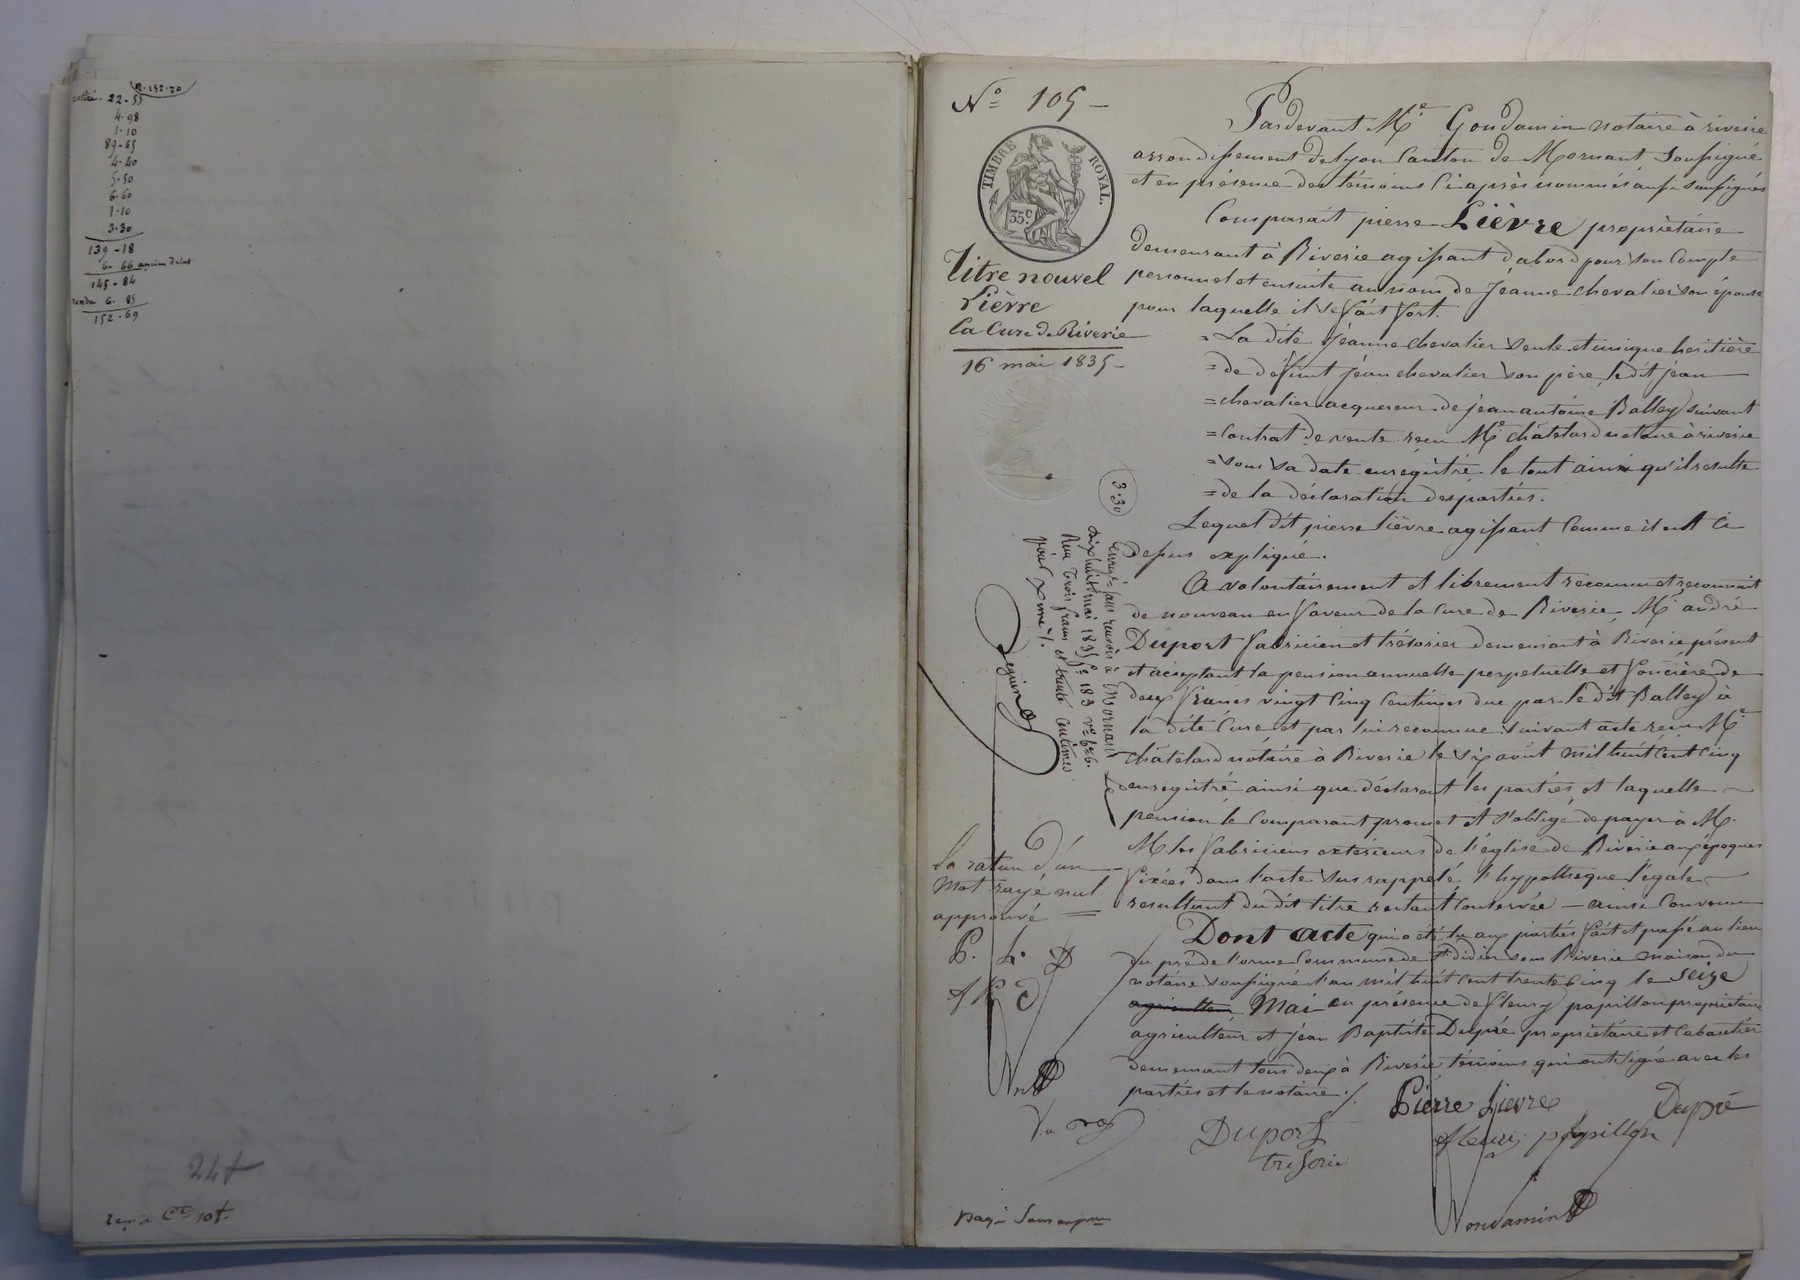 R. 152-70
22-55
4-98
1-10
89-65
4-40
5-50
6-60
1-10
3-30
139-18
6-66 ancien débet
145-84
6-85
152-69
24 f
N° 105
TIMBRE ROYAL.
35 c
Titre nouvel
Lièvre
La Cure de Riverie
16 mai 1835
Pardevant Me Gondamin notaire à riverie
arrondissement de lyon Canton de Mornant soussigné
et en présence des témoins Ci après nommés aussi soussignés
Comparait pierre Lièvre propriétaire
demeurant à Riverie agissant d'abord pour son Compte
personnel et ensuite au nom de Jéanne chevalier son épouse
pour laquelle il se fait fort.
= La dite Jéanne chevalier seule et unique heritière
= de défunt jéan chevalier son père, le dit jéan
= chevalier acquereur de jean antoine Balley suivant
= Contrat de vente recu Me châtelard notaire à riverie
= sous sa date enrégistré le tout ainsi qu'il resulte
= de la déclaration des parties.
Lequel dit pierre lièvre agissant Comme il est Ci
dessus expliqué.
A volontairement et librement reconnu et reconnait
de nouveau en faveur de la cure de Riverie, Mr andré
Duport fabricien et trésorier demeurant à Riverie présent
et acceptant la pension annuelle perpetuelle et foncière de
deux francs vingt cinq Centimes due par le dit Balley à
la dite Cure et par lui reconnue suivant acte recu Me
Châtelard notaire à Riverie le six août mil huit Cent Cinq
enregistré ainsi que déclarent les parties, et laquelle
pension le Comparant promet et s'oblige de payer à M.
M les fabriciens exterieurs de l'église de Riverie aux époques
fixées dans l'acte sus rappelé, l'hypothèque légale
resultant du dit titre restant Conservée — ainsi Convenu
Dont acte qui a été lu aux parties fait et passé au lieu
du pré de l'orme Commune de St didier sous Riverie maison du
notaire soussigné l'an mil huit Cent trente Cinq le seize
agriculteur Mai en présence de fleury papillon propriétaire
agriculteur et jéan Baptiste Dupré propriétaire et Cabaretier
demeurant tous deux à Riverie, témoins qui ont signé avec les
parties et le notaire /.
3-30
Enregé sans renvois à Mornant Le
dix huit mai 1835 f° 183 r° c 6.
Recu trois francs et trente centimes
pour Xime /.
Seguin
la rature d'un
mot rayé nul
approuvé =
P. L. D
f P D
Pierre Lievre
Dupré
Duport
trésorier
fleury papillon
Gondamin